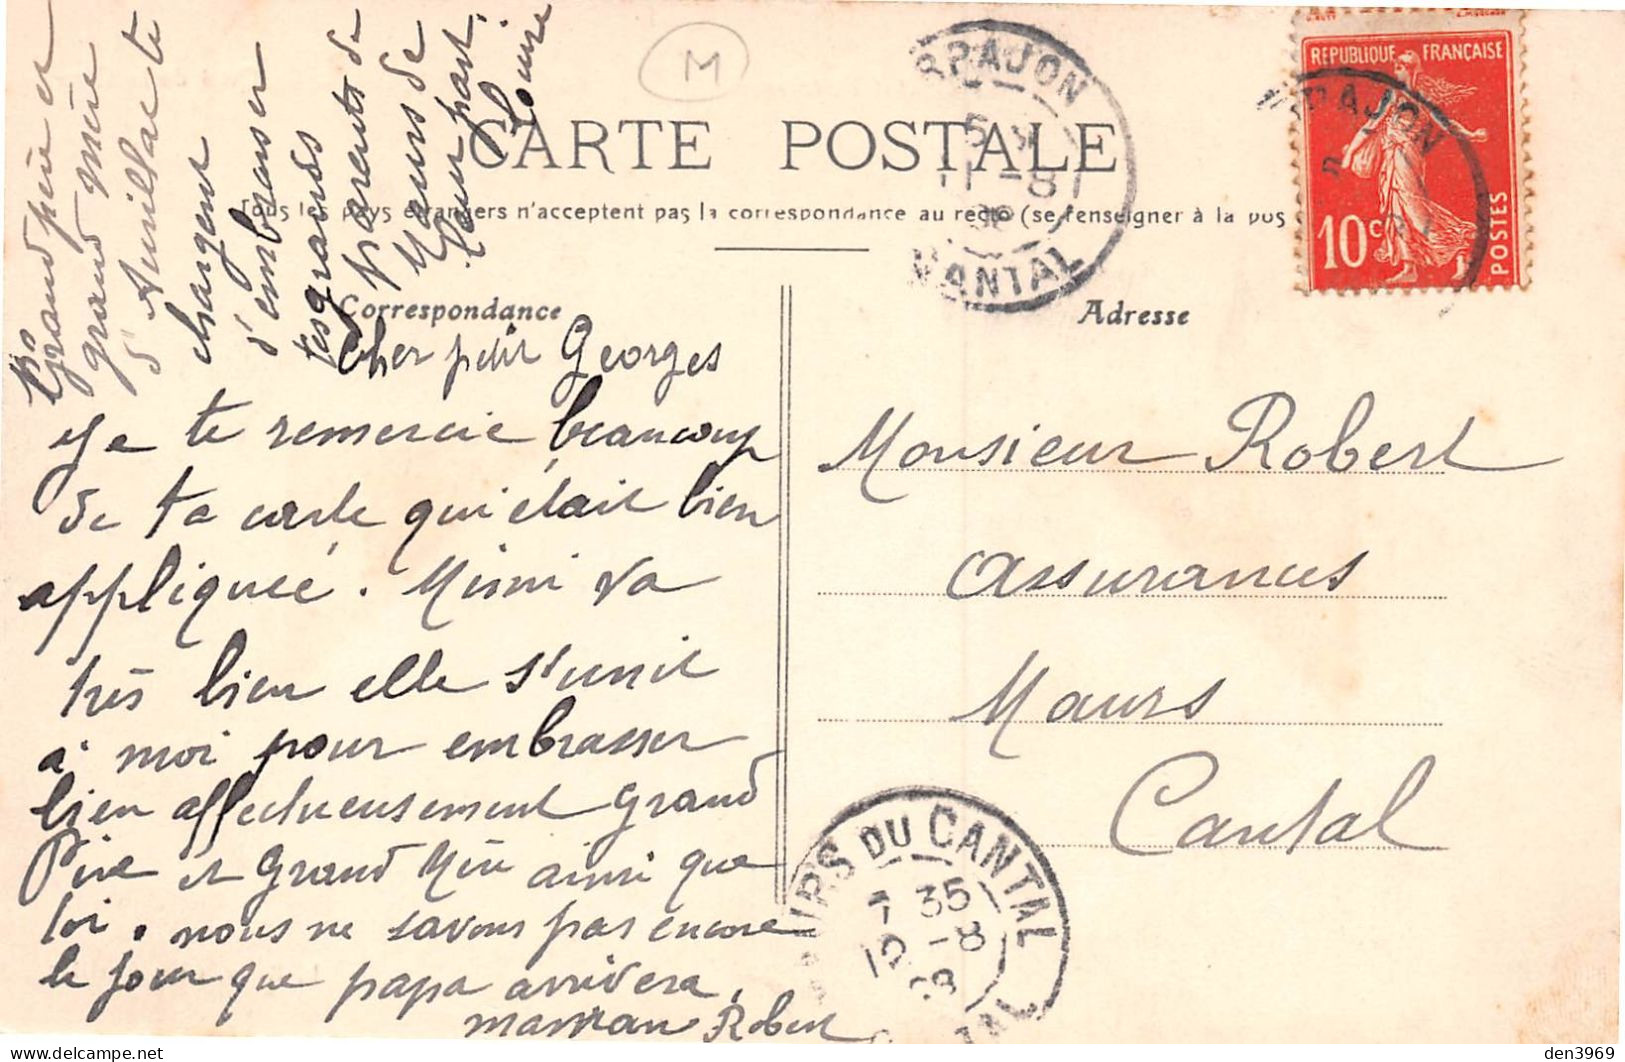 M
CARTE POSTALE
Tous les pays étrangers n'acceptent pas la correspondance au recto (se renseigner à la pos
REPUBLIQUE FRANÇAISE
10c
POSTES
ARPAJON
11-8
CANTAL
ARPAJON
Correspondance
Adresse
Cher petit Georges
Je te remercie beaucoup
de ta carte qui était bien
appliquée. Mimi va
très bien elle s'unit
à moi pour embrasser
bien affectueusement Grand
Père et Grand Mère ainsi que
toi. nous ne savons pas encore
le jour que papa arrivera.
maman Robert
Grand père et
grand Mère
d'Aurillac te
chargent
d'embrasser
tes grands
parents de
Maurs de
leur part.
Louise
Monsieur Robert
Assurances
Maurs
Cantal
MAURS DU CANTAL
7 35
12-8
08
CANTAL
den3969